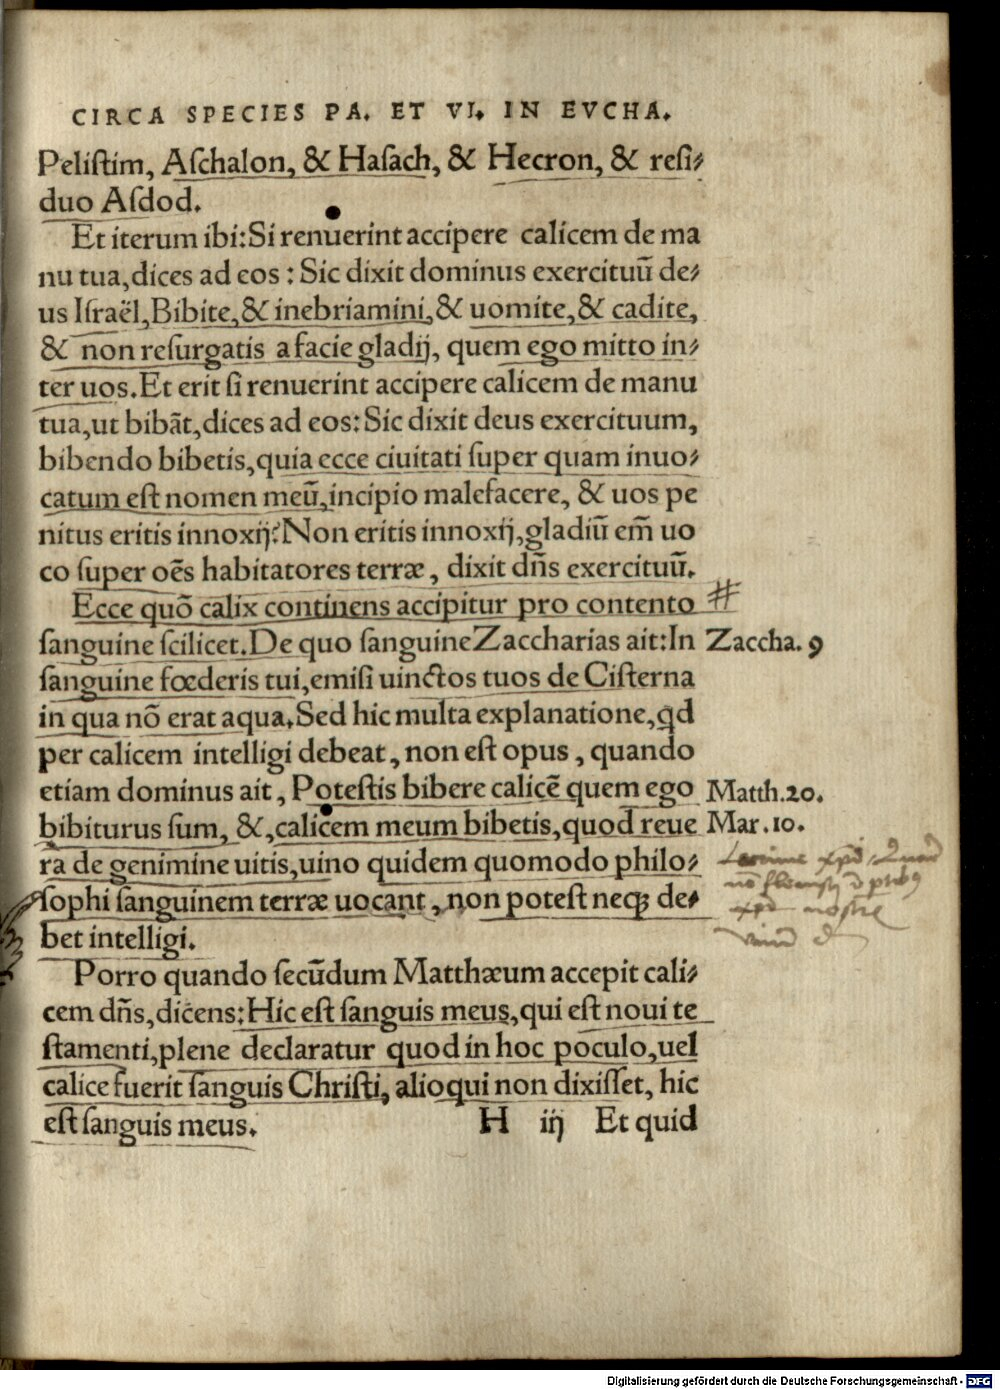 CIRCA SPECIES PA. ET VI. IN EVCHA.
Peliſtim, Aſchalon, & Haſach, & Hecron, & reſi⸗
duo Aſdod.
Et iterum ibi: Si renuerint accipere calicem de ma
nu tua, dices ad eos: Sic dixit dominus exercituū de⸗
us Iſraël, Bibite, & inebriamini, & uomite, & cadite,
& non reſurgatis a facie gladij, quem ego mitto in⸗
ter uos. Et erit ſi renuerint accipere calicem de manu
tua, ut bibāt, dices ad eos: Sic dixit deus exercituum,
bibendo bibetis, quia ecce ciuitati ſuper quam inuo⸗
catum eſt nomen meū, incipio malefacere, & uos pe
nitus eritis innoxij? Non eritis innoxij, gladiū em̄ uo
co ſuper oēs habitatores terræ, dixit dn̄s exercituū.
Ecce quō calix continens accipitur pro contento
ſanguine ſcilicet. De quo ſanguine Zaccharias ait: In
Zaccha. 9
ſanguine fœderis tui, emiſi uinctos tuos de Ciſterna
in qua nō erat aqua. Sed hic multa explanatione, qd
per calicem intelligi debeat, non eſt opus, quando
etiam dominus ait, Poteſtis bibere calicē quem ego
Matth. 20.
bibiturus ſum, &, calicem meum bibetis, quod reue
Mar. 10.
ra de genimine uitis, uino quidem quomodo philo⸗
ſophi ſanguinem terræ uocant, non poteſt neqꝫ de⸗
bet intelligi.
Porro quando ſecūdum Matthæum accepit cali⸗
cem dn̄s, dicens: Hic eſt ſanguis meus, qui eſt noui te
ſtamenti, plene declaratur quod in hoc poculo, uel
calice fuerit ſanguis Chriſti, alioqui non dixiſſet, hic
eſt ſanguis meus.
H iij Et quid
Digitalisierung gefördert durch die Deutsche Forschungsgemeinschaft - DFG